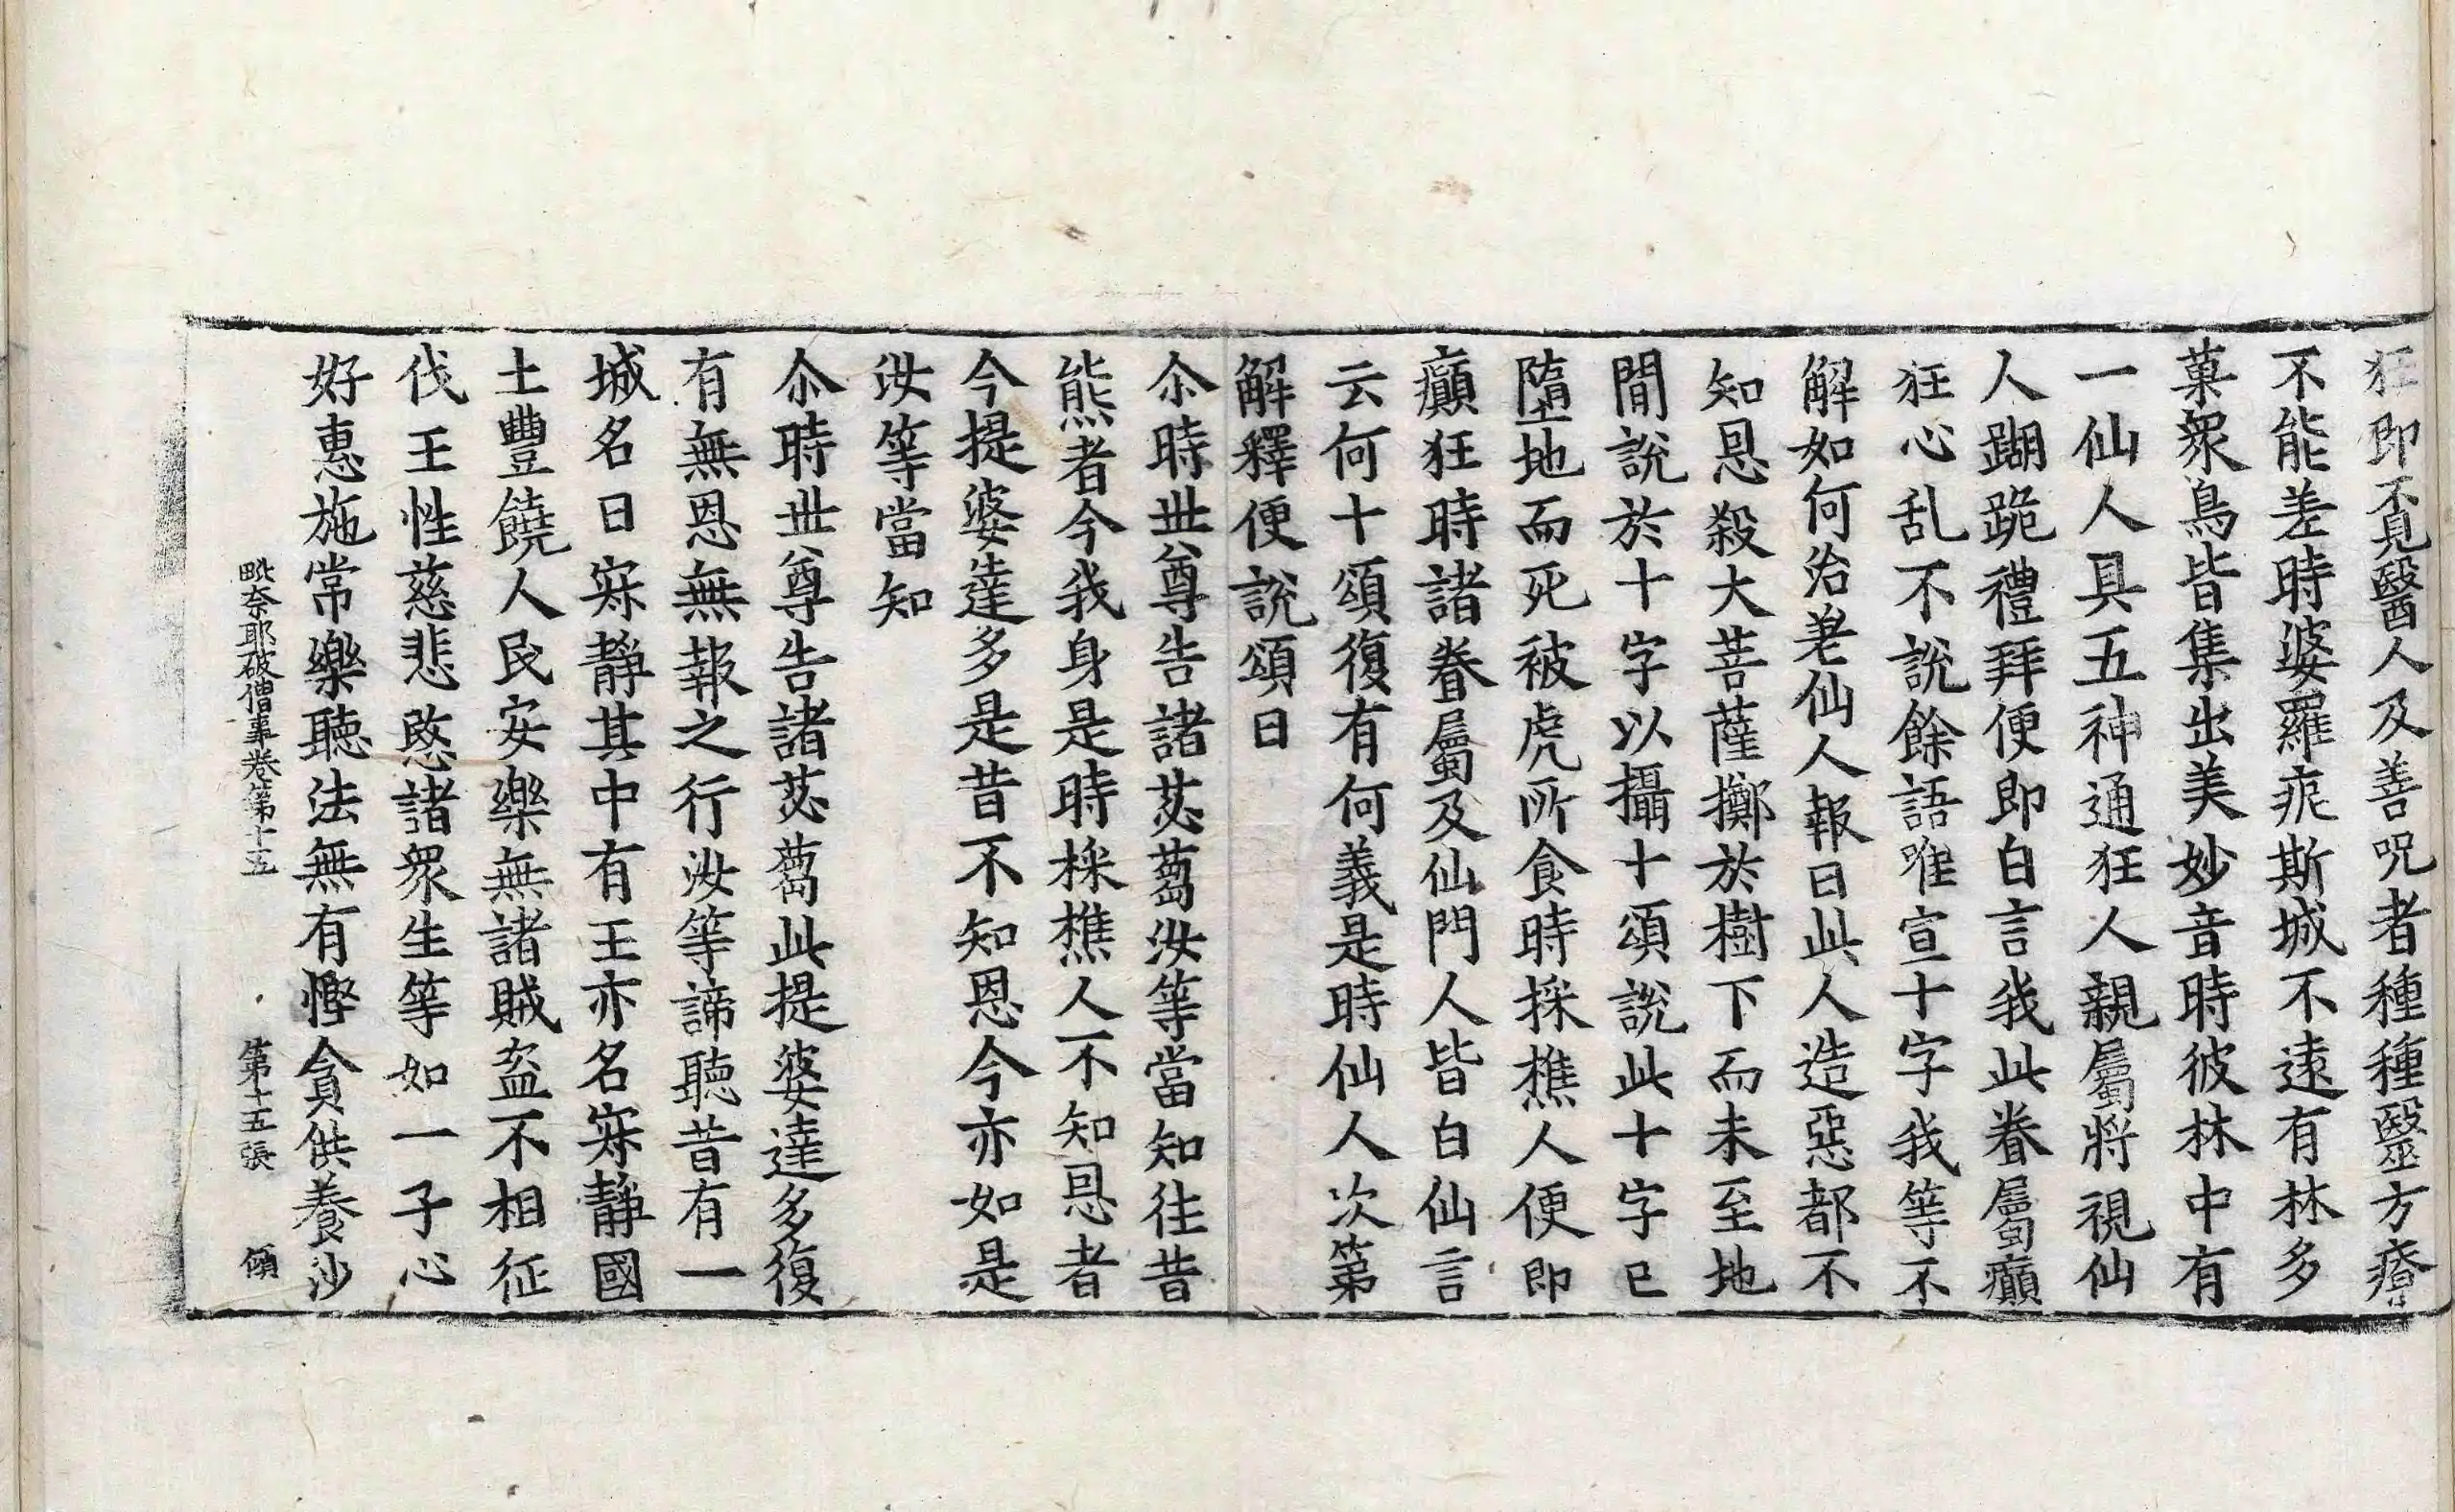 狂即不覓醫人及善呪者種種毉方療
不能差時婆羅痆斯城不遠有林多
菓衆鳥皆集出美妙音時彼林中有
一仙人具五神通狂人親屬將視仙
人蹦跪禮拜便即白言我此眷屬癲
狂心乱不說餘語唯宣十字我等不
解如何治差仙人報曰此人造惡都不
知恩殺大菩薩擲於樹下而未至地
間說於十字以攝十頌說此十字已
墮地而死被虎所食時採樵人便即
癲狂時諸眷屬及仙門人皆白仙言
云何十頌復有何義是時仙人次第
解釋便說頌曰
尒時世尊告諸苾蒭汝等當知往昔
熊者今我身是時採樵人不知恩者
今提婆達多是昔不知恩今亦如是
汝等當知
尒時世尊告諸苾蒭此提婆達多復
有無恩無報之行汝等諦聽昔有一
城名曰寂靜其中有王亦名寂靜國
土豐饒人民安樂無諸賊盗不相征
伐王性慈悲愍諸衆生等如一子心
好惠施常樂聽法無有慳貪供養沙
毗奈耶破僧事卷第十五 第十五張 傾